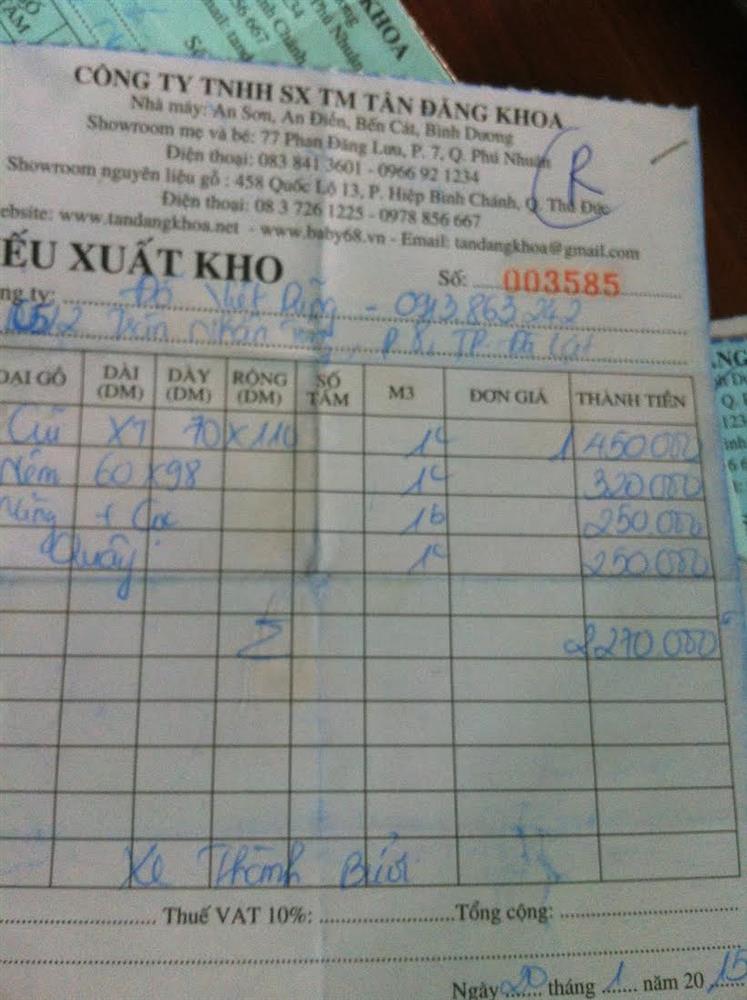 CÔNG TY TNHH SX TM TÂN ĐĂNG KHOA
Nhà máy: An Sơn, An Điền, Bến Cát, Bình Dương
Showroom mẹ và bé: 77 Phan Đăng Lưu, P. 7, Q. Phú Nhuận
Điện thoại: 083 841 3601 - 0966 92 1234
Showroom nguyên liệu gỗ : 458 Quốc Lộ 13, P. Hiệp Bình Chánh, Q. Thủ Đức
Điện thoại: 08 3 726 1225 - 0978 856 667
ebsite: www.tandangkhoa.net - www.baby68.vn - Email: tandangkhoa@gmail.com
R
ẾU XUẤT KHO Số: 003585
ng ty: Đỗ Việt Dũng - 0913.863.242
Trần Nhân P 8, TP. Đà Lạt
OẠI GỖ DÀI (DM) DÀY (DM) RỘNG (DM) SỐ TẤM M3 ĐƠN GIÁ THÀNH TIỀN
Cũi X7 70 X 110 1c 1 450.000
Nệm 60 X 98 1c 320.000
+ 1b 250.000
Quây 1c 250.000
Σ 2 270.000
Xe Thành Bưởi
Thuế VAT 10%: Tổng cộng:
Ngày 20 tháng 1 năm 20 15